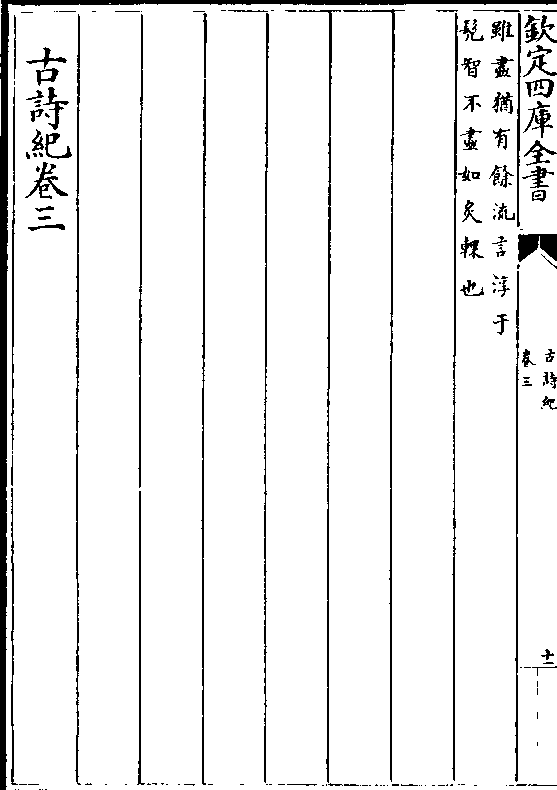 欽定四庫全書
古詩紀
卷三
十一
雖盡猶有餘流言淳于
髠智不盡如炙輠也
古詩紀卷三